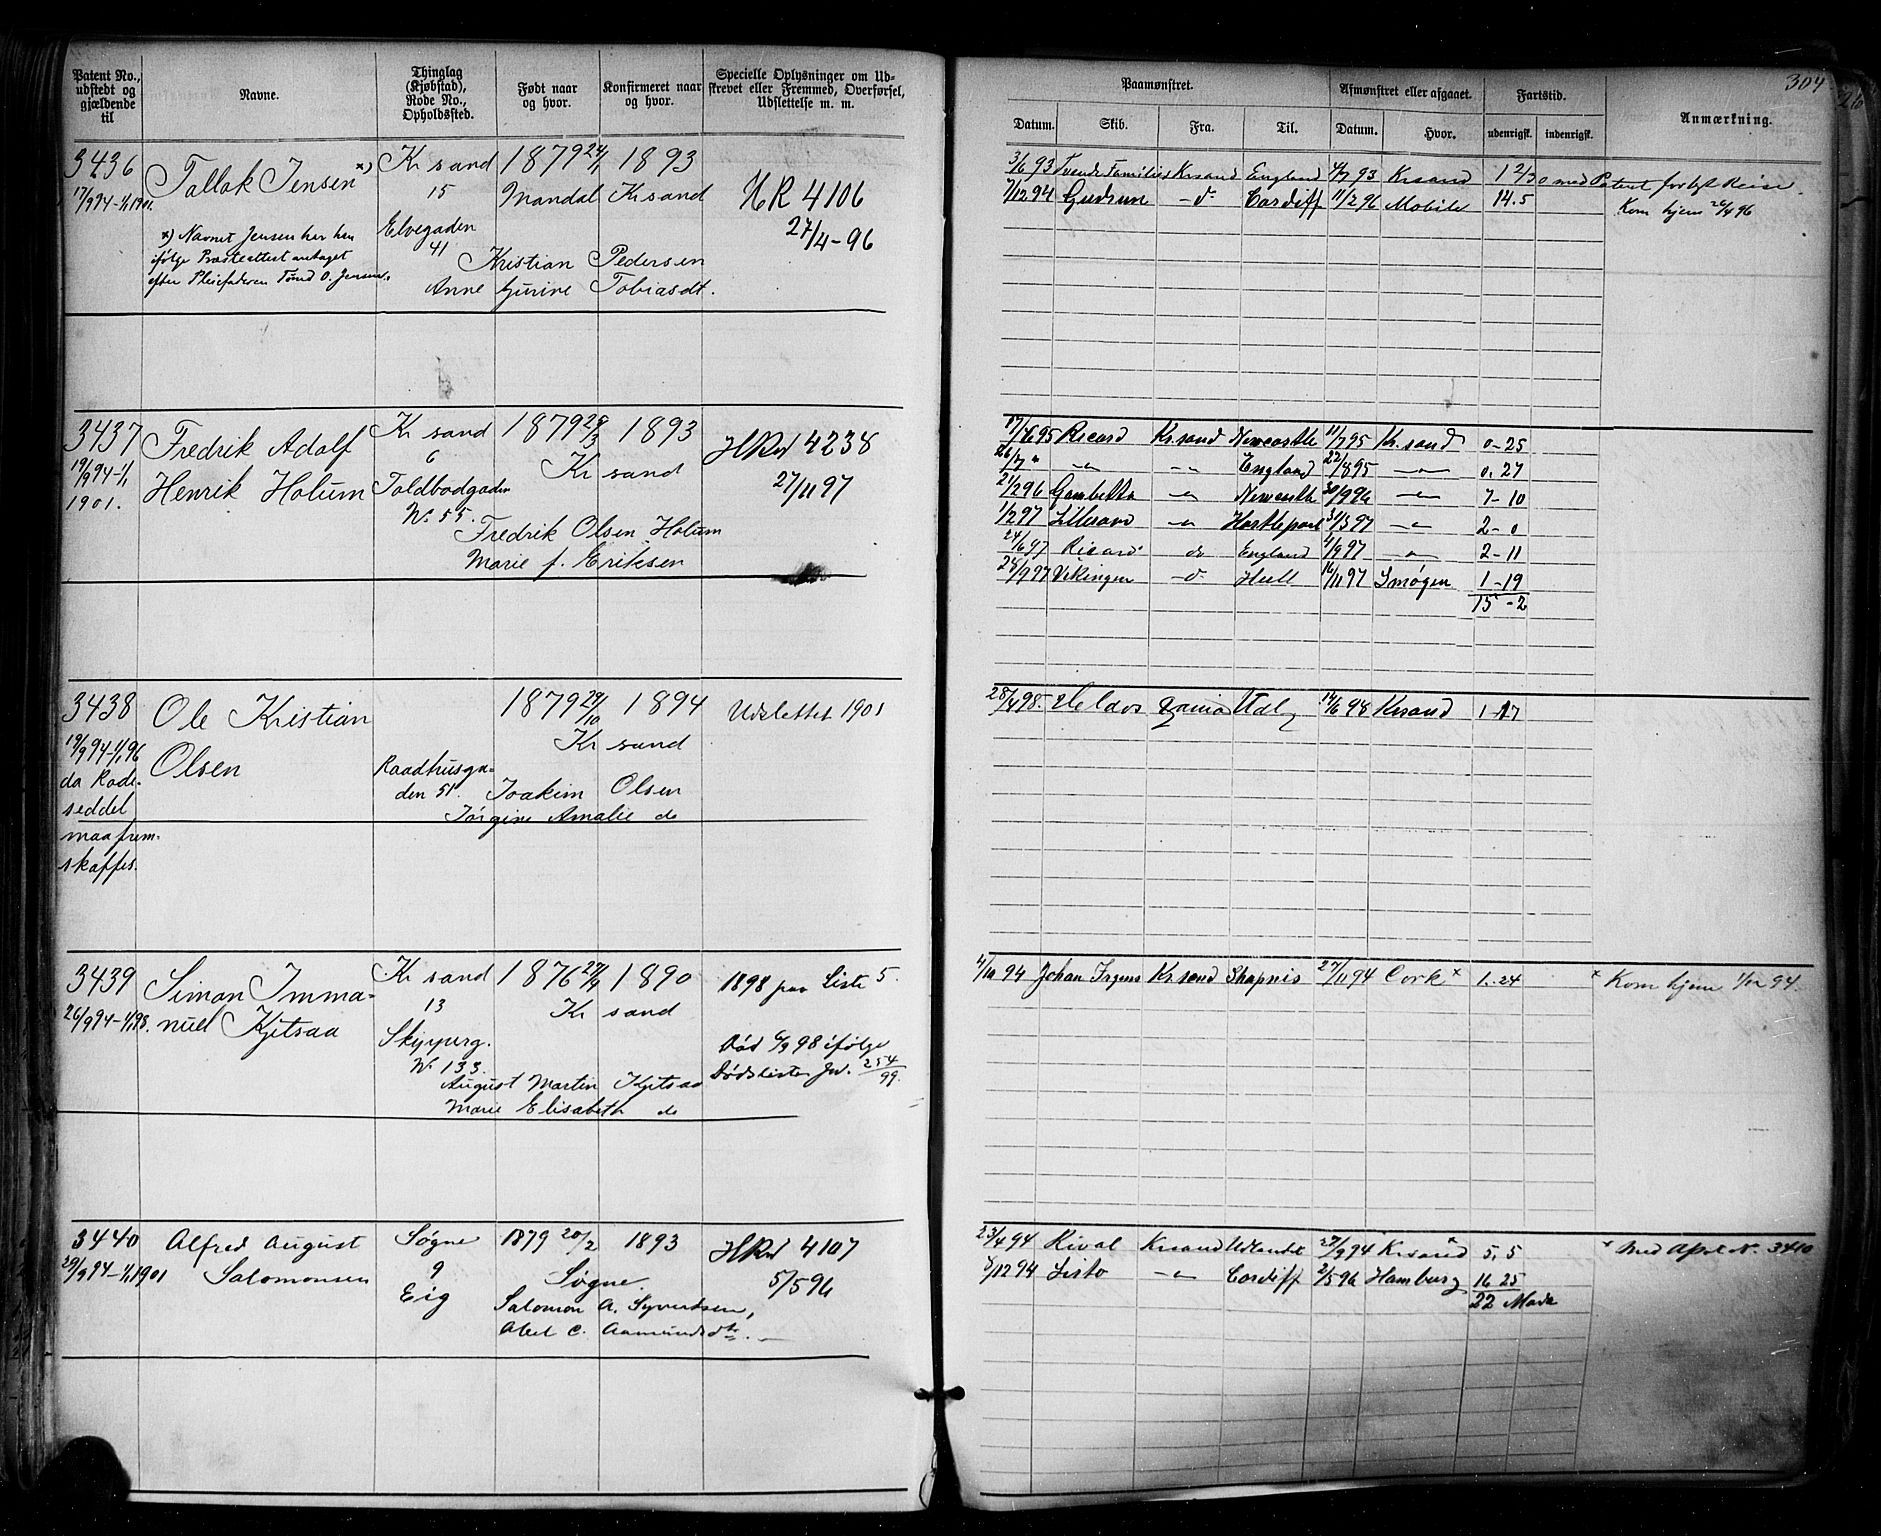 304
Patent No., udstedt og gjældende til
Navne.
Thinglag (Kjøbstad), Rode No., Opholdssted.
Født naar og hvor.
Konfirmeret naar og hvor.
Specielle Oplysninger om Udskrevet eller Fremmed, Overførsel, Udslettelse m. m.
Paamønstret.
Afmønstret eller afgaaet.
Fartstid.
Anmærkning.
Datum. Skib. Fra. Til. Datum. Hvor. udenrigsk. indenrigsk.
3436 Tallak Jensen x) Kr sand 1879 24/1 1893
17/9 94-1/1 1901. 15 Mandal Kr sand HR 4106
Elvegaden 27/4-96
41
x) Navnet Jensen har han
ifølge Presteattest antaget
efter Pleiefaderen Tønd O. Jensen.
Kristian Pedersen
Anne Gurine Tobiasdt.
3/6 93 Tvende Familier Krsand England 93 Krsand
7/12 94 Gudrun - d Cardiff 11/2 96 Mobile 14.5
med Patent forlyst Reise.
Kom hjem 26/4 96
3437 Fredrik Adolf Kr sand 1879 29/3 1893
19/9 94-1/1 1901. Henrik Holum 6 Kr sand HRd 4238
Toldbodgaden 27/11 97
No 55.
Fredrik Olsen Holum
Marie f. Eriksen
17/6 95 Ricard Kr.sand Newcastle 11/7 95 Kr.sand 0-25
26/7 " - " - - " - England 22/8 95 - " - 0.27
21/2 96 Gambetta - " - Newcastle 30/9 96 - " - 7-10
1/2 97 Lillesand - " - Hartlepool 31/3 97 - " - 2-0
24/6 97 Ricard do England 4/9 97 - " - 2-11
28/9 97 Vikingen - d Hull 16/11 97 Smøgen 1-19
15-2
3438 Ole Kristian 1879 29/10 1894 Udslettet 1901
19/9 94-1/1 96 Olsen Kr sand
da Rode-
seddel
maa frem-
skaffes.
Raadhusga-
den 51.
Joakim Olsen
Jørgine Amalie do
28/4 98. Helios Udl 14/6 98 Krsand 1-17
3439 Simon Imma- Kr sand 1876 27/9 1890 1898 paa Liste 5.
26/9 94-1/1 98. nuel Kjetsaa 13 Kr sand
Skipperg.
No 133.
Død 6/9 98 ifølge
Dødsliste Jn. 254/99.
August Martin Kjetsaa
Marie Elisabeth do
4/10 94 Johan Irgens Kr sand 27/11 94 Cork x 1.-24 x Kom hjem 1/12 94.
3440 Alfred August Søgne 1879 20/2 1893 HRd 4107
29/9 94-1/1 1901 Salomonsen 9 Søgne 5/5 96
Eig
Salomon A. Syvertsen,
Abel C. Aamundsdtr.
23/4 94 Rival Krsand Udlandet 27/9 94 Krsand x 5.5 x Med Afst N. 3410
5/12 94 Lista - " - Cardiff 2/5 96 Hamburg 16 25
22 Mndr